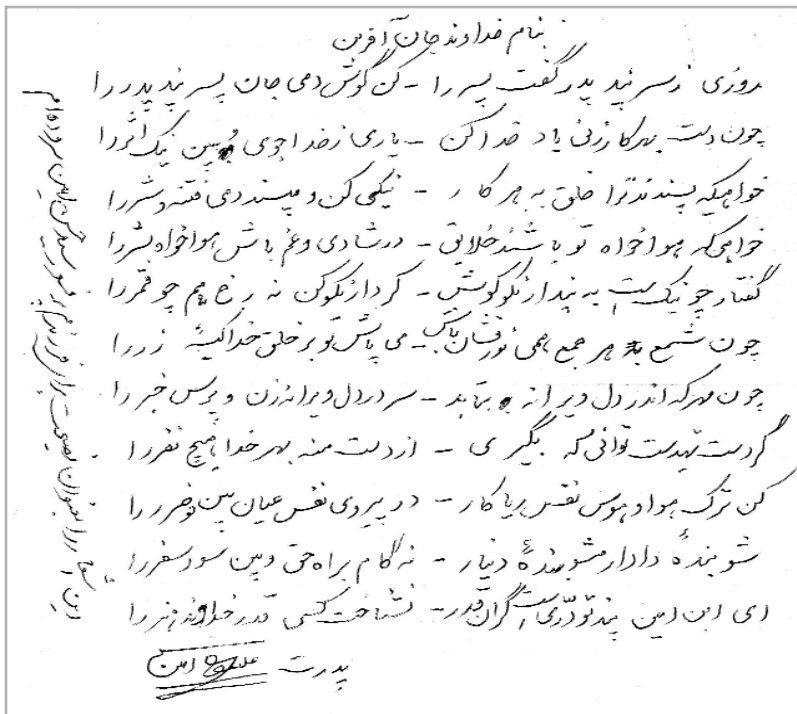 بنام خداوند جان آفرین
روزی ز سر پند پدر گفت پسر را - کن گوش دمی جان پسر پند پدر را
چون دست بهر کار زنی یاد خدا کن - یاری ز خدا جوی و ببین نیک اثر را
خواهیکه پسندند ترا خلق به هر کار - نیکی کن و مپسند دمی فتنه و شر را
خواهی که هواخواه تو باشند خلایق - در شادی و غم باش هواخواه بشر را
گفتار چو نیک است به پندار نکو کوش - کردار نکو کن نه رخ همچو قمر را
چون شمع به هر جمع همی نورفشان باش - می پاش تو بر خلق خدا کیسهٔ زر را
چون مهر که اندر دل ویرانه بتابد - سر در دل ویرانه زن و پرس خبر را
گر دست تهیدست توانی که بگیری - از دست منه بهر خدا هیچ نفر را
کن ترک هوا و هوس نفس ریاکار - در پیروی نفس عیان بین تو ضرر را
شو بندهٔ دادار مشو بندهٔ دینار - نه گام براه حق و بین سود سفر را
ای ابن امین پند تو درّی است گران قدر - نشناخت کسی قدر خداوند هنر را
پدرت امین
این اشعار را بعنوان نصیحت برای فرزندم پرفسور سید حسن امین سروده‌ام